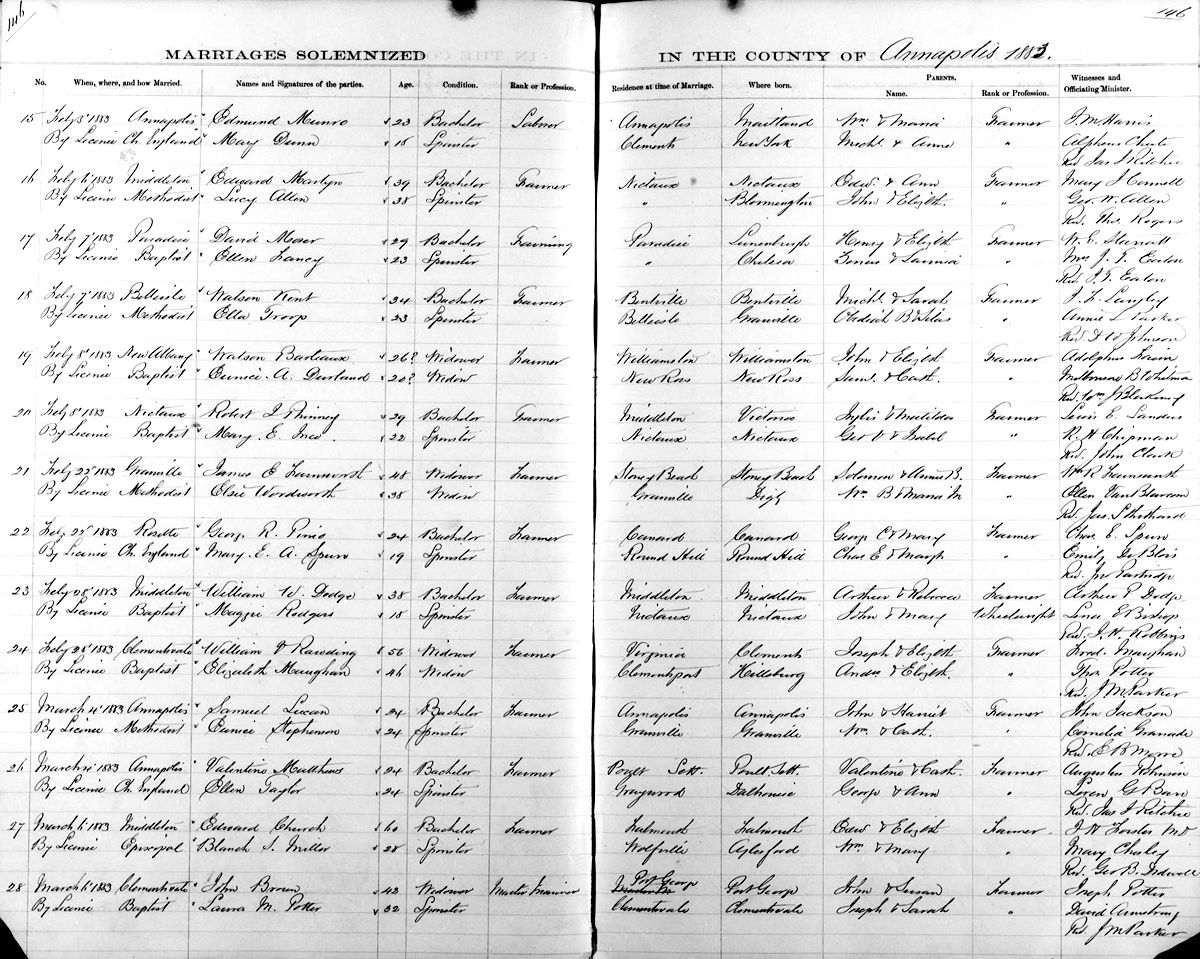 146
146
MARRIAGES SOLEMNIZED IN THE COUNTY OF Annapolis 1883.
No. When, where, and how Married. Names and Signatures of the parties. Age. Condition. Rank or Profession. Residence at time of Marriage. Where born. PARENTS. Name. Rank or Profession. Witnesses and Officiating Minister.
15 Feby 3' 1883 Annapolis Edmund Munro 23 Bachelor Labour Annapolis Maitland Wm & Maria Farmer J. M. Harris
By Licence Ch. England Mary Dunn 18 Spinster Clements New York Michl & Anne " Alpheus Chute
Rev Jas J Ritchie
16 Feby 6' 1883 Middleton Edward Martyn 39 Bachelor Farmer Nictaux Nictaux Edwd & Ann Farmer Mary J Connell
By Licence Methodist Lucy Allen 38 Spinster " Bloomington John & Elizth. " Geo. W. Allen
Rev. Thos Rogers
17 Feby 7' 1883 Paradise David Moser 29 Bachelor Farming Paradise Lunenburgh Henry & Elizth Farmer W. E. Starratt
By Licence Baptist Ellen Lancy 23 Spinster " Chelsea " Mrs J. T. Eaton
Rev J. T. Eaton
18 Feby 7' 1883 Belleisle Watson Kent 24 Bachelor Farmer Bentville Bentville Michl & Sarah Farmer J. F. Langley
By Licence Methodist Ella Troop 23 Spinster Belleisle Granville Obediah B & Silas " Annie L Parker
Rev D W Johnson
19 Feby 8' 1883 New Albany Watson Barteaux 26? Widower Farmer Williamston Williamston John & Elizth Farmer Adolphus
By Licence Baptist Eunice A. Durland 20? Widow New Ross New Ross Saml. & Cath. " Melbourne B Whitman
Rev. Wm J Bleakney
20 Feby 8' 1883 Nictaux Robert I Phinney 29 Bachelor Farmer Middleton Victoria & Matilda Farmer Lewis E. Landers
By Licence Baptist Mary. E. 22 Spinster Nictaux Nictaux Geo V & Isabel " R. H Chipman
Rev. John Clark
21 Feby 22' 1883 Granville James E Farnworth 48 Widower Farmer Stoney Beach Stoney Beach Solomon & Annie B. Farmer Wm R Farnsworth
By Licence Methodist Elsie Wordworth 38 Widow Granville Digby Wm B & Maria M " Ellen Van Blarcom
Rev. Jas. Strothard
22 Feby 22' 1883 Rosette George R. Pineo 24 Bachelor Farmer Canard Canard George C & Mary Farmer Chas. E. Spurr
By Licence Ch. England Mary. E. A. Spurr 19 Spinster Round Hill Round Hill Chas E & Margth " Emily De Blois
Rev. Jn Partridge
23 Feby 28' 1883 Middleton William W. Dodge 38 Bachelor Farmer Middleton Middleton Arthur & Rebecca Farmer Arthur P Dodge
By Licence Baptist Maggie Rodgers 18 Spinster Nictaux Nictaux John & Mary Wheelwright Lena E Bishop
Rev J. H. Robbins
24 Feby 28' 1883 Clementsvale William V Rawding 56 Widower Farmer Virginia Clements Joseph & Elizth Farmer Fred. Maughan
By Licence Baptist Elizabeth Maughan 46 Widow Clementsport Hillsburg Andw & Elizth. " Thos Potter
Rev. J M Parker
25 March 4' 1883 Annapolis Samuel Lucan 24 Bachelor Farmer Annapolis Annapolis John & Harriet Farmer John Jackson
By Licence Methodist Eunice Stephenson 24 Spinster Granville Granville Wm. & Cath. " Cornelia Granade
Rev. E B Moore
26 March 4' 1883 Annapolis Valentine Matthews 24 Bachelor Farmer Poult Sett. Poult Sett. Valentine & Cath. Farmer Augustus Robinson
By Licence Ch England Ellen Taylor 24 Spinster Graywood Dalhousie George & Ann " Loren G. Barr
Rev. Jas J Ritchie
27 March 6' 1883 Middleton Edward Church 60 Bachelor Farmer Falmouth Falmouth Edwd & Elizth Farmer J. H Fowler
By Licence Episcopal Blanch S. Miller 28 Spinster Wolfville Aylesford Wm. & Mary " Mary Chesley
Rev. Geo B. Dodwell
28 March 6' 1883 Clementsvale John Brown 42 Widower Master Mariner Port George Port George John & Susan Farmer Joseph Potter
By Licence Baptist Laura M. Potter 32 Spinster Clementsvale Clementsvale Joseph & Sarah " David Armstrong
Rev. J M Parker